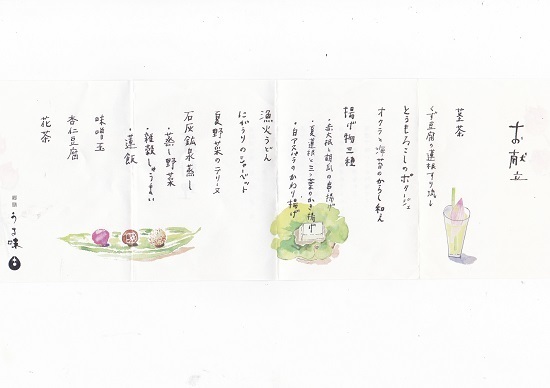 お献立
茎茶
くず豆腐の蓮根すり流し
とうもろこしのポタージュ
オクラと海苔のからし和え
揚げ物三種
・赤大根と胡瓜の串揚げ
・夏蓮根と三ツ葉のかき揚げ
・白アスパラのかわり揚げ
漁火うどん
にがうりのシャーベット
夏野菜のテリーヌ
石灰鉱泉蒸し
・蒸し野菜
雑穀しゅうまい
・蓮飯
味噌玉
杏仁豆腐
花茶
うま味